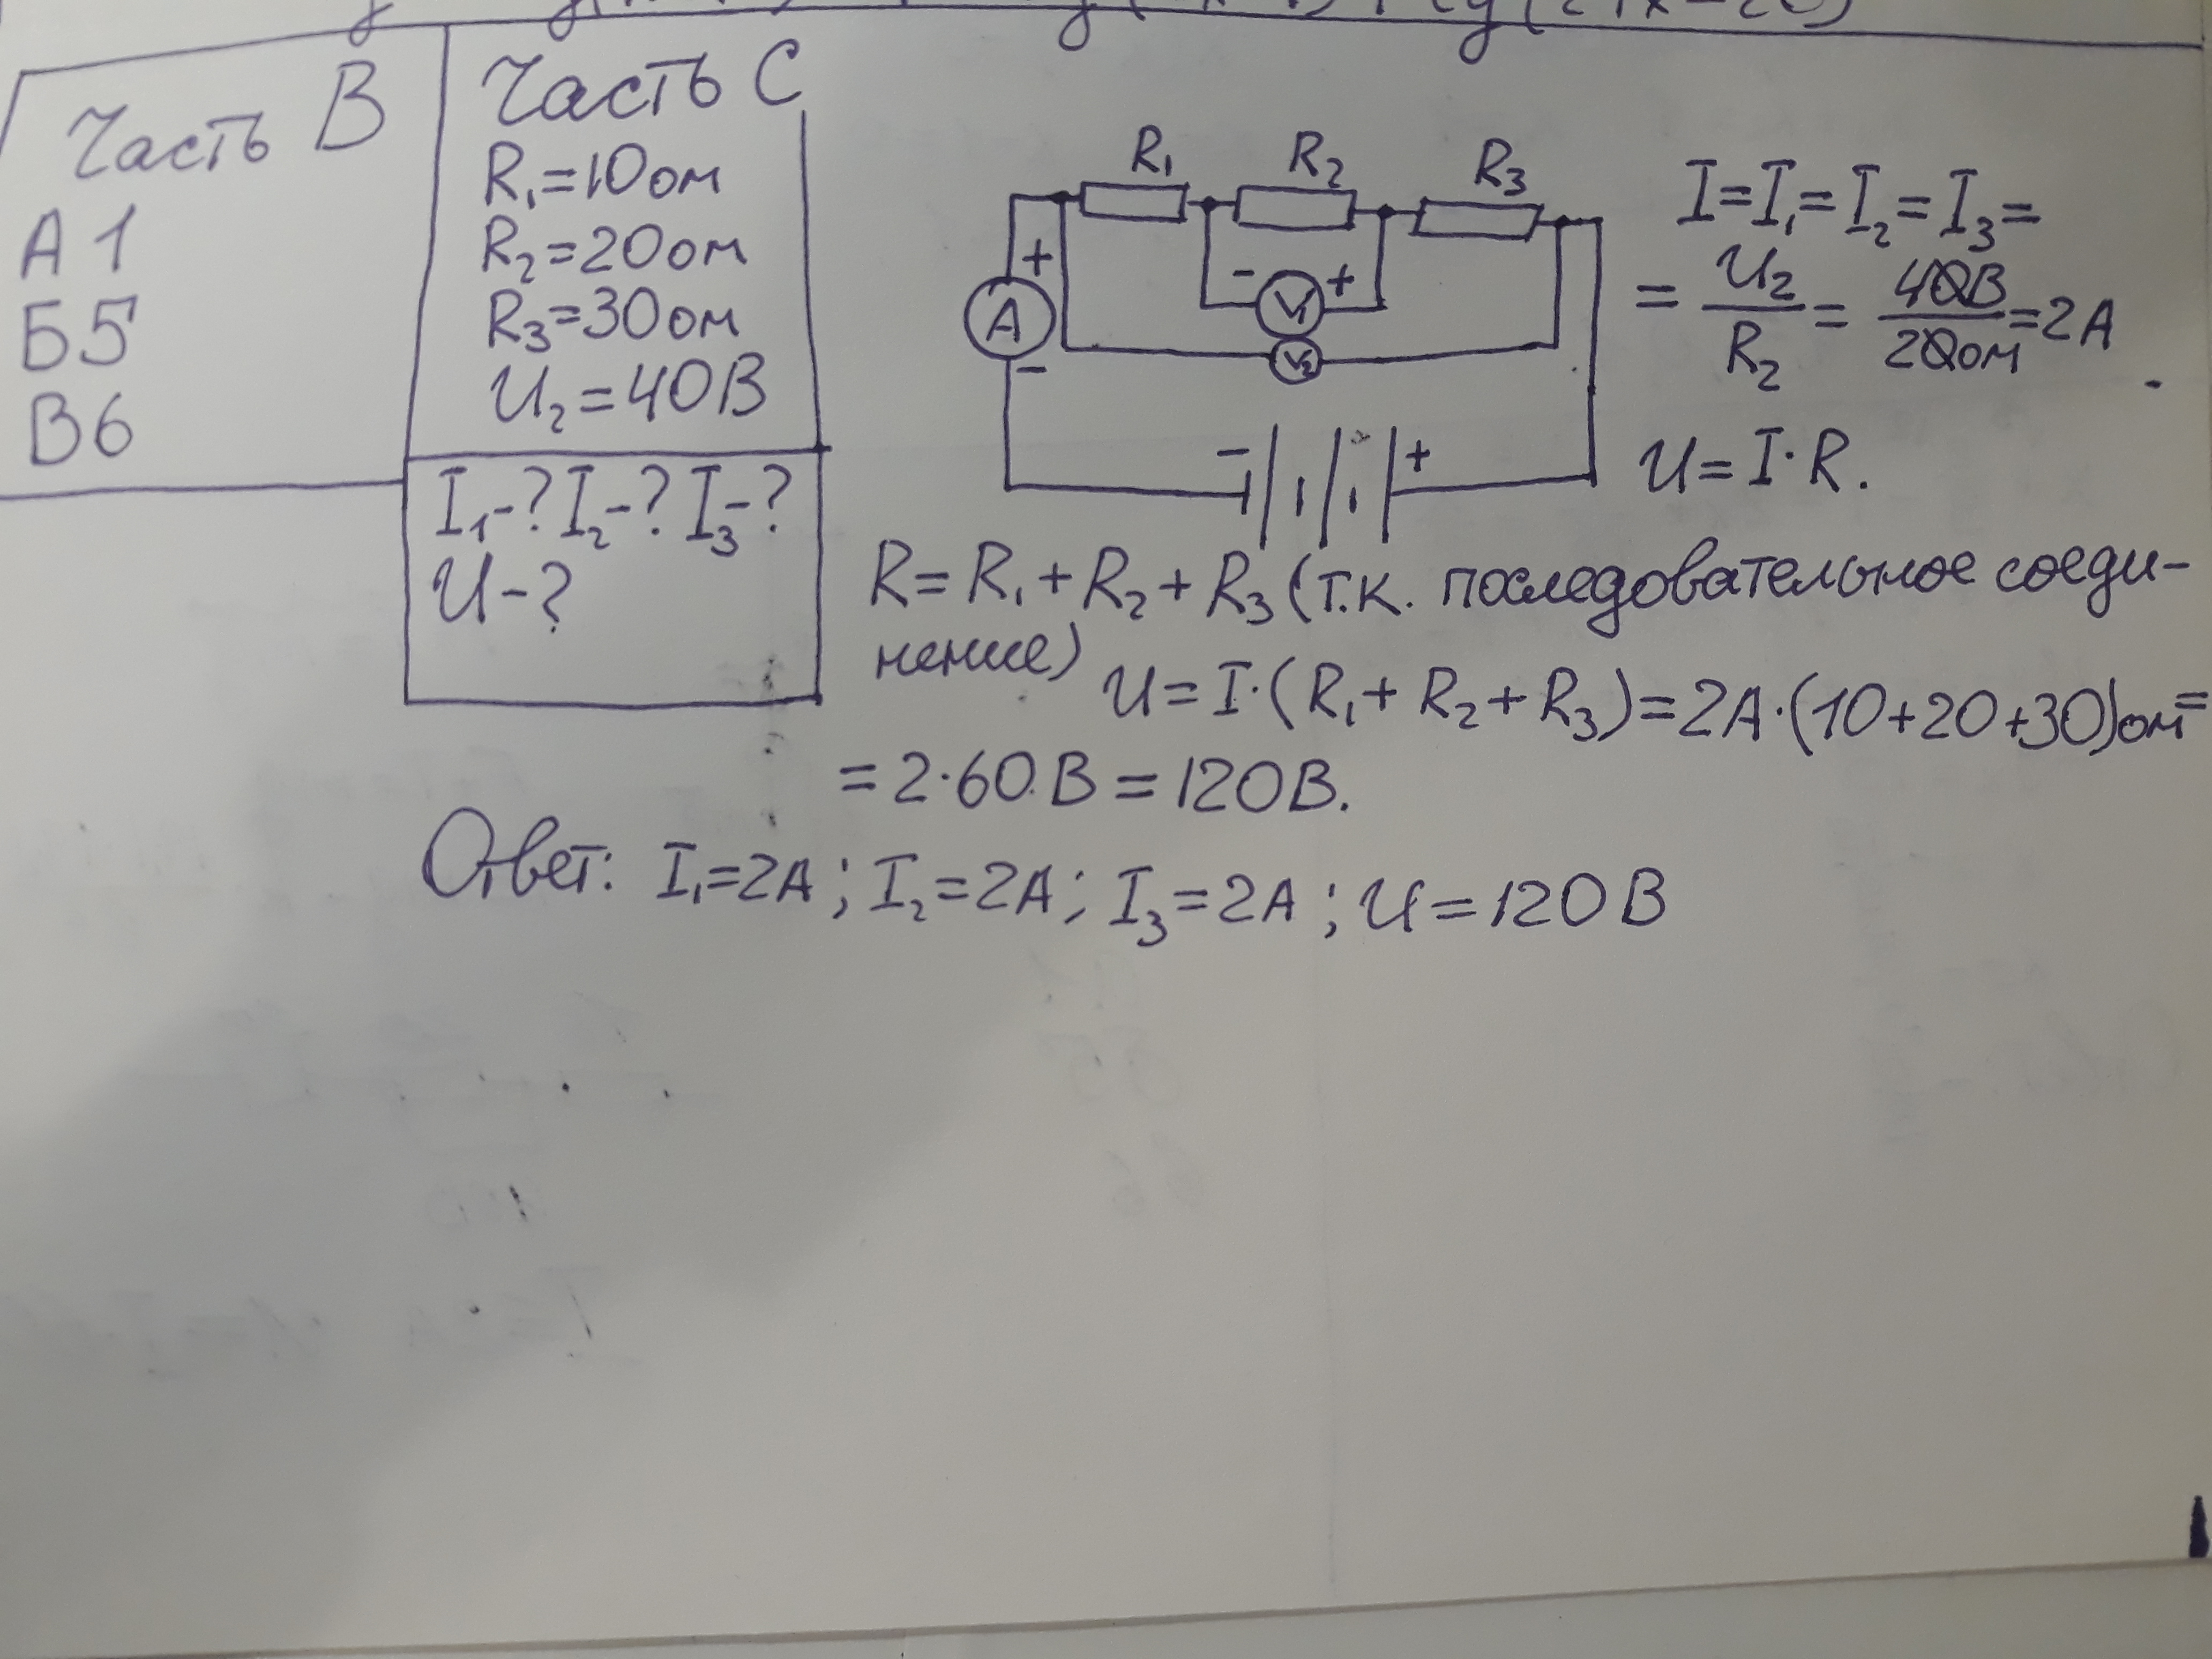 Часть В
А 1
Б5
В6
Часть С
R₁=10ом
R₂=20ом
R₃=30ом
U₂=40В
I₁-? I₂-? I₃-?
U-?
R₁ R₂ R₃
+
- V₁ +
A
V₂
-
- +
I=I₁=I₂=I₃=
= U₂/R₂ = 40В/20ом =2А
U=I·R.
R=R₁+R₂+R₃(т.к. последовательное соеди-
нение)
U=I·(R₁+R₂+R₃)=2А·(10+20+30)ом=
=2·60В=120В.
Ответ: I₁=2А; I₂=2А; I₃=2А; U=120В